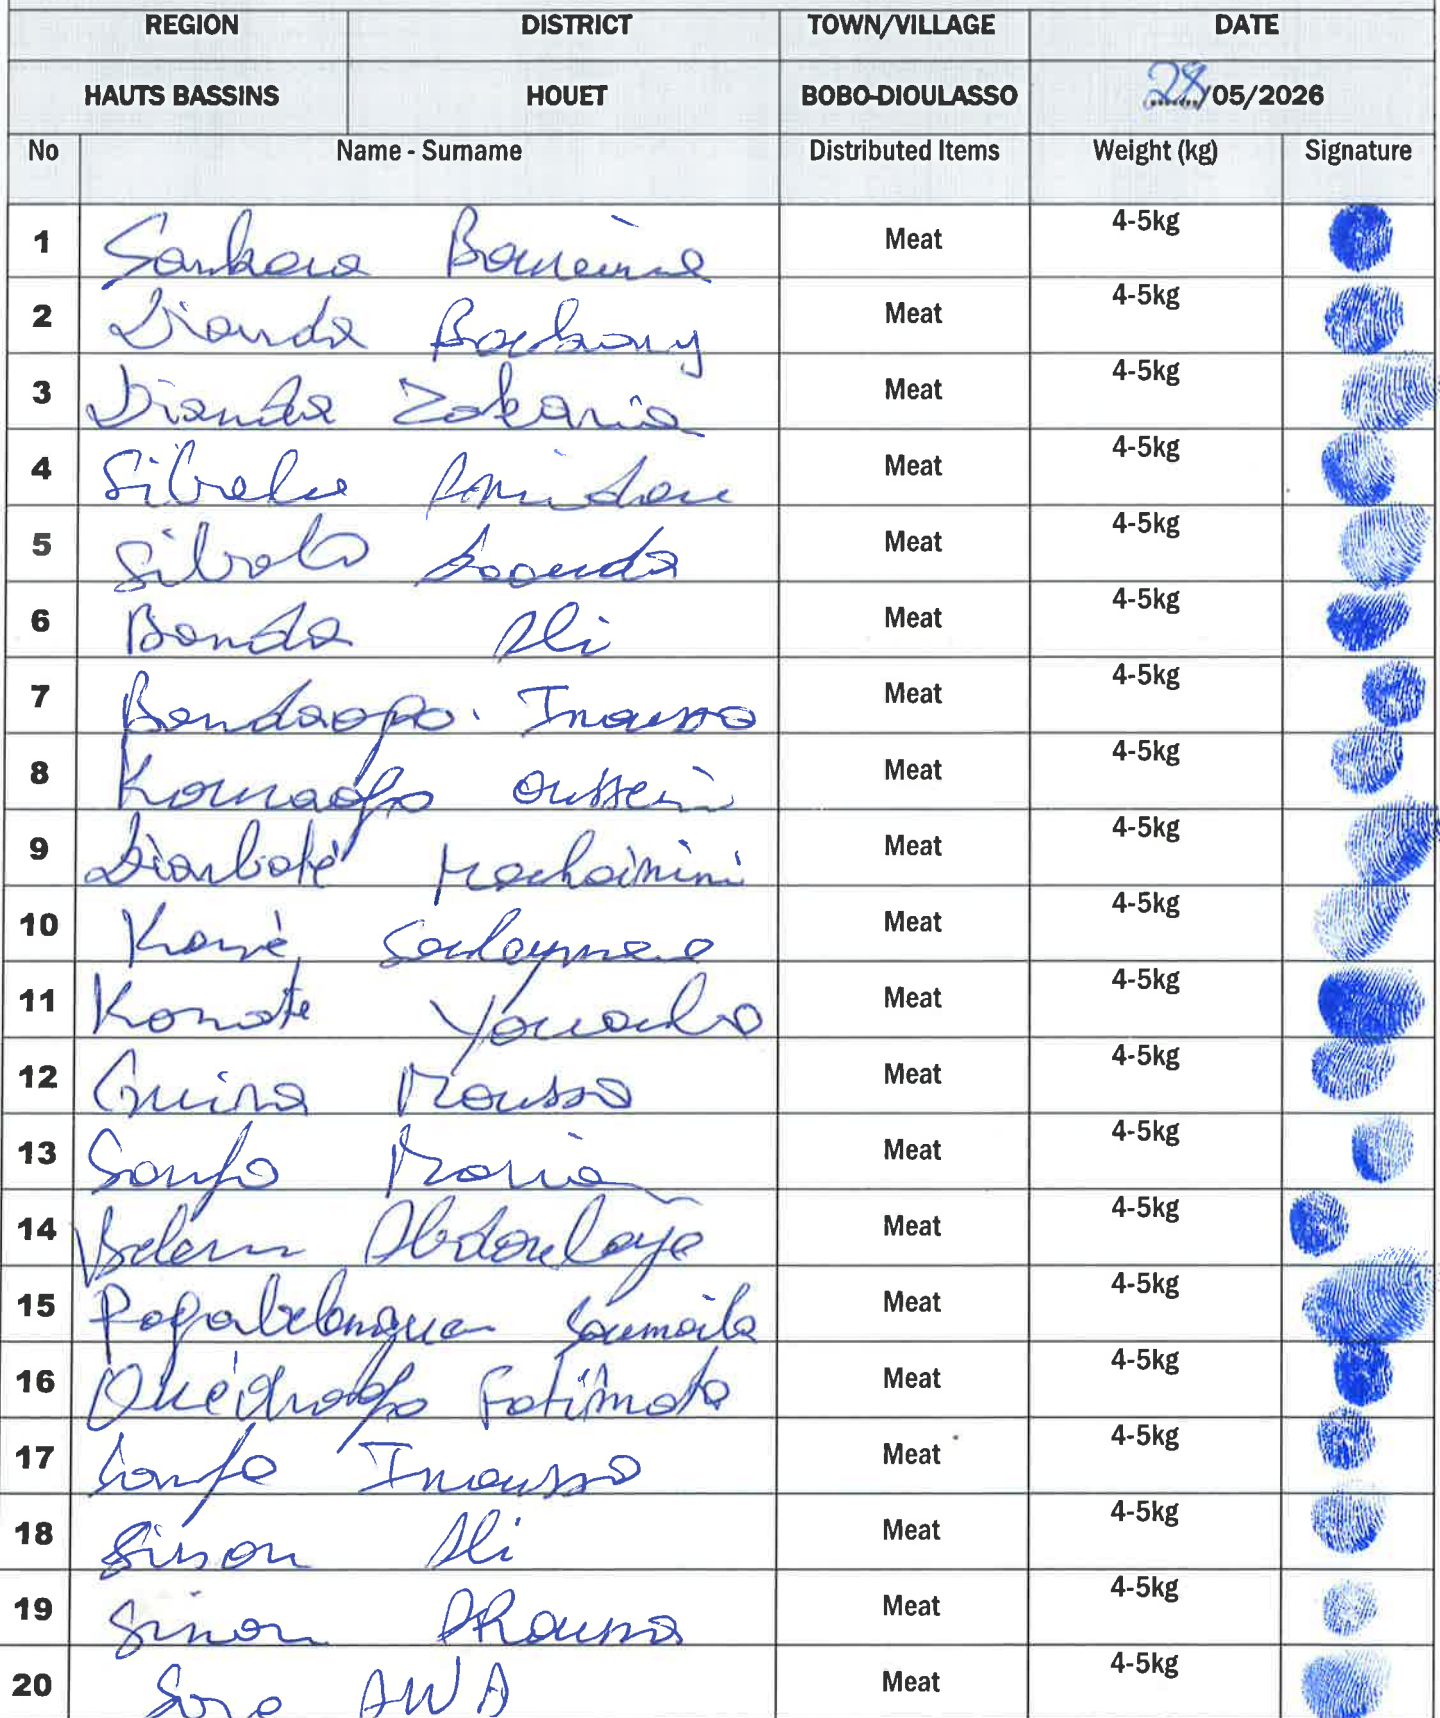 REGION DISTRICT TOWN/VILLAGE DATE
HAUTS BASSINS HOUET BOBO-DIOULASSO 28/05/2026
No Name - Surname Distributed Items Weight (kg) Signature
1 Sankara Boureima Meat 4-5kg
2 Dianda Boukary Meat 4-5kg
3 Dianda Zakaria Meat 4-5kg
4 Sibalo Amidou Meat 4-5kg
5 Sibalo Daouda Meat 4-5kg
6 Banda Ali Meat 4-5kg
7 Bandaogo Inoussa Meat 4-5kg
8 Kouraogo Ousseni Meat 4-5kg
9 Diarbaté Meat 4-5kg
10 Koné Souleymane Meat 4-5kg
11 Konate Youssouf Meat 4-5kg
12 Guira Moussa Meat 4-5kg
13 Sanfo Maria Meat 4-5kg
14 Belem Abdoulaye Meat 4-5kg
15 Soumaila Meat 4-5kg
16 Ouédraogo Fatimata Meat 4-5kg
17 Sanfo Inoussa Meat 4-5kg
18 Sinon Ali Meat 4-5kg
19 Sinon Meat 4-5kg
20 Sore AWA Meat 4-5kg